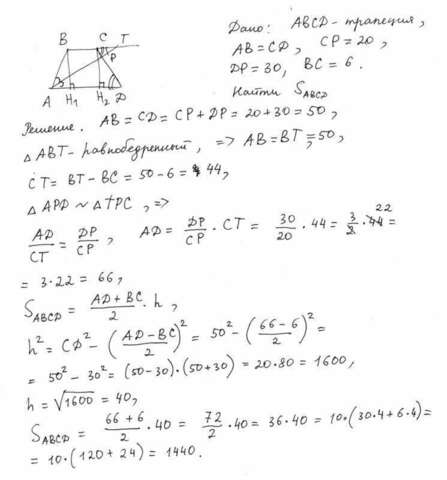 Дано: ABCD - трапеция,
AB = CD, CP = 20,
DP = 30, BC = 6.
Найти S_ABCD
B C T
P
A H₁ H₂ D
Решение. AB = CD = CP + DP = 20 + 30 = 50,
△ ABT - равнобедренный, => AB = BT = 50,
CT = BT - BC = 50 - 6 = 44,
△ APD ~ △ TPC, =>
AD/CT = DP/CP, AD = DP/CP · CT = 30/20 · 44 = 3/2 · 44 22 =
= 3 · 22 = 66,
S_ABCD = (AD + BC)/2 · h,
h² = CD² - ((AD - BC)/2)² = 50² - ((66 - 6)/2)² =
= 50² - 30² = (50 - 30) · (50 + 30) = 20 · 80 = 1600,
h = √1600 = 40,
S_ABCD = (66 + 6)/2 · 40 = 72/2 · 40 = 36 · 40 = 10 · (30 · 4 + 6 · 4) =
= 10 · (120 + 24) = 1440.